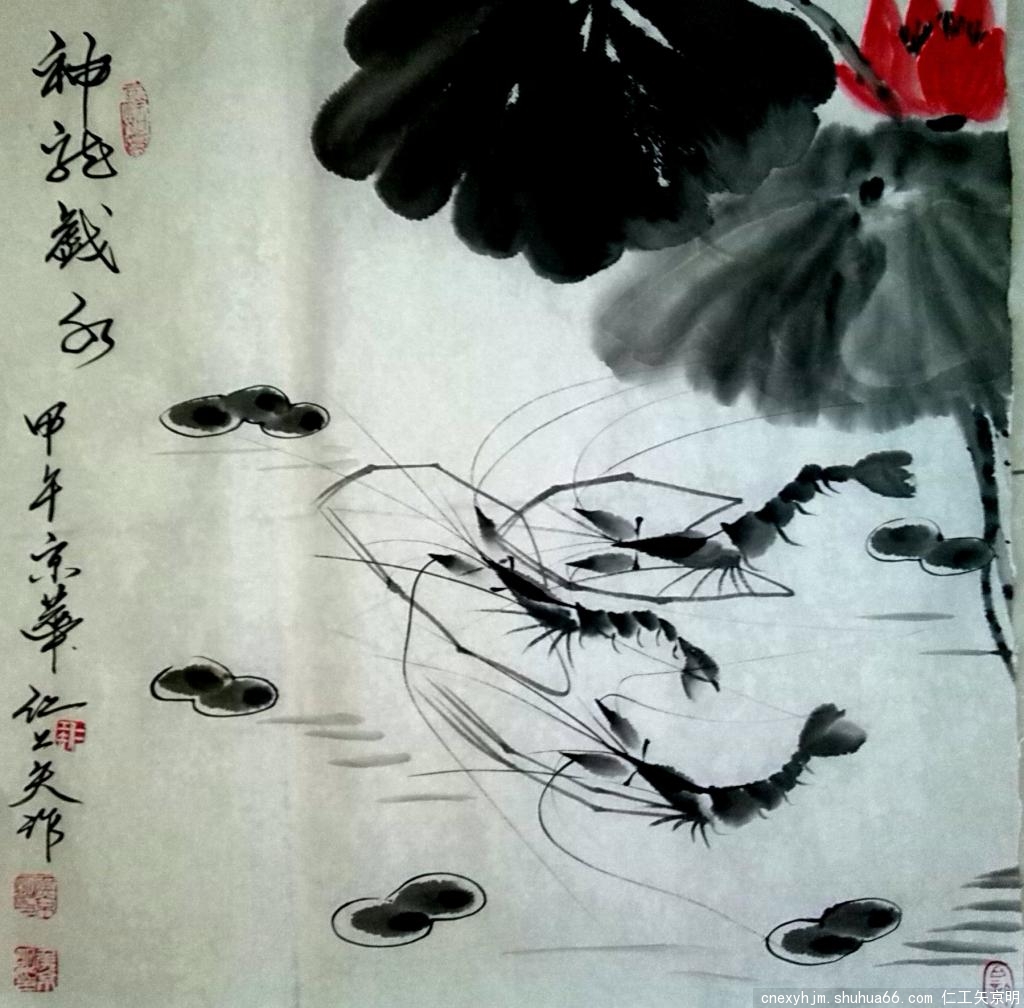 神龙戏水
甲午京華仁工矢作
cnexyhjm.shuhua66.com 仁工矢京明